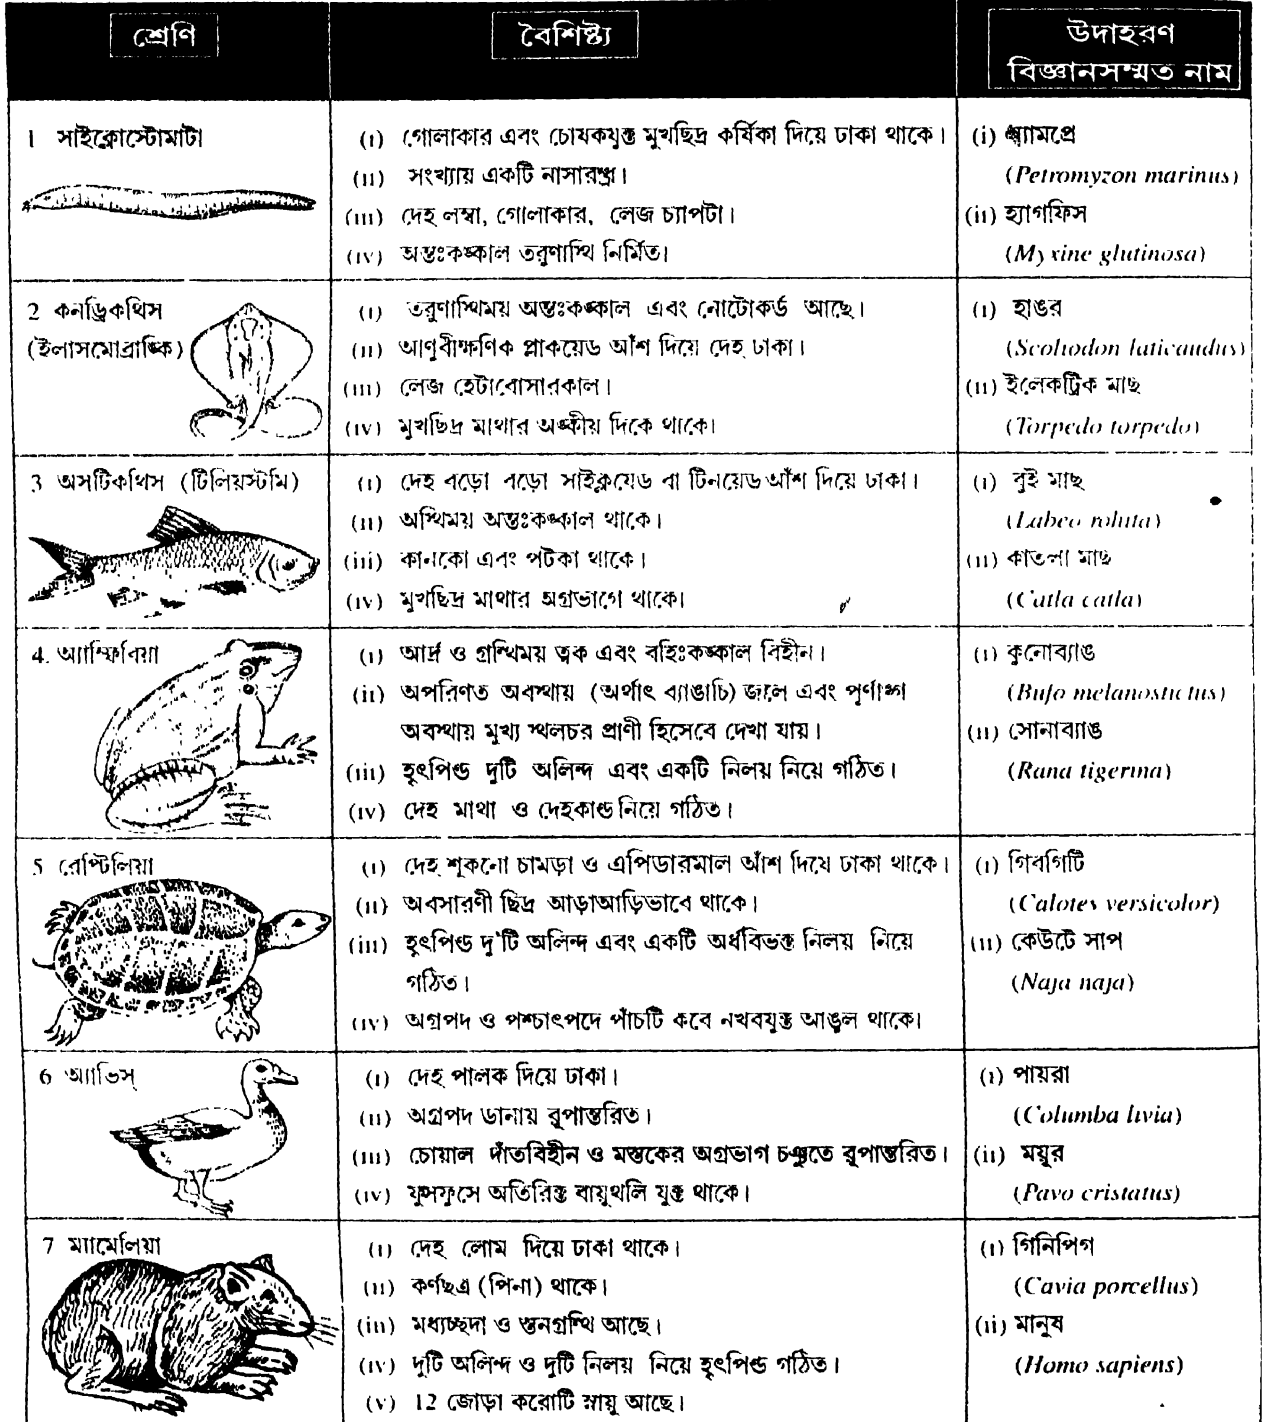 শ্রেণি
বৈশিষ্ট্য
উদাহরণ
বিজ্ঞানসম্মত নাম
1 সাইক্লোস্টোমাটা
(i) গোলাকার এবং চোষকযুক্ত মুখছিদ্র কর্ষিকা দিয়ে ঢাকা থাকে।
(ii) সংখ্যায় একটি নাসারন্ধ্র।
(iii) দেহ লম্বা, গোলাকার, লেজ চ্যাপটা।
(iv) অন্তঃকঙ্কাল তরুণাস্থি নির্মিত।
(i) ল্যামপ্রে
(Petromyzon marinus)
(ii) হ্যাগফিস
(Myxine glutinosa)
2 কনড্রিকথিস
(ইলাসমোব্রাঙ্কি)
(i) তরুণাস্থিময় অন্তঃকঙ্কাল এবং নোটোকর্ড আছে।
(ii) আণুবীক্ষণিক প্লাকয়েড আঁশ দিয়ে দেহ ঢাকা।
(iii) লেজ হেটাবোসারকাল।
(iv) মুখছিদ্র মাথার অঙ্কীয় দিকে থাকে।
(i) হাঙর
(Scoliodon laticaudus)
(ii) ইলেকট্রিক মাছ
(Torpedo torpedo)
3 অসটিকথিস (টিলিয়স্টমি)
(i) দেহ বড়ো বড়ো সাইক্লয়েড বা টিনয়েড আঁশ দিয়ে ঢাকা।
(ii) অস্থিময় অন্তঃকঙ্কাল থাকে।
(iii) কানকো এবং পটকা থাকে।
(iv) মুখছিদ্র মাথার অগ্রভাগে থাকে।
(i) রুই মাছ
(Labeo rohita)
(ii) কাতলা মাছ
(Catla catla)
4. অ্যাম্ফিবিয়া
(i) আর্দ্র ও গ্রন্থিময় ত্বক এবং বহিঃকঙ্কাল বিহীন।
(ii) অপরিণত অবস্থায় (অর্থাৎ ব্যাঙাচি) জলে এবং পূর্ণাঙ্গ
অবস্থায় মুখ্য স্থলচর প্রাণী হিসেবে দেখা যায়।
(iii) হৃৎপিণ্ড দুটি অলিন্দ এবং একটি নিলয় নিয়ে গঠিত।
(iv) দেহ মাথা ও দেহকাণ্ড নিয়ে গঠিত।
(i) কুনোব্যাঙ
(Bufo melanostictus)
(ii) সোনাব্যাঙ
(Rana tigerina)
5 রেপ্টিলিয়া
(i) দেহ শুকনো চামড়া ও এপিডারমাল আঁশ দিযে ঢাকা থাকে।
(ii) অবসারণী ছিদ্র আড়াআড়িভাবে থাকে।
(iii) হৃৎপিণ্ড দু'টি অলিন্দ এবং একটি অর্ধবিভক্ত নিলয় নিয়ে
গঠিত।
(iv) অগ্রপদ ও পশ্চাৎপদে পাঁচটি কবে নখবযুক্ত আঙুল থাকে।
(i) গিবগিটি
(Calotes versicolor)
(ii) কেউটে সাপ
(Naja naja)
6 অ্যাভিস্
(i) দেহ পালক দিয়ে ঢাকা।
(ii) অগ্রপদ ডানায় রূপান্তরিত।
(iii) চোয়াল দাঁতবিহীন ও মস্তকের অগ্রভাগ চঞ্চুতে রূপান্তরিত।
(iv) ফুসফুসে অতিরিক্ত বায়ুথলি যুক্ত থাকে।
(i) পায়রা
(Columba livia)
(ii) ময়ূর
(Pavo cristatus)
7 ম্যামেলিয়া
(i) দেহ লোম দিয়ে ঢাকা থাকে।
(ii) কর্ণছত্র (পিনা) থাকে।
(iii) মধ্যচ্ছদা ও স্তনগ্রন্থি আছে।
(iv) দুটি অলিন্দ ও দুটি নিলয় নিয়ে হৃৎপিণ্ড গঠিত।
(v) 12 জোড়া করোটি স্নায়ু আছে।
(i) গিনিপিগ
(Cavia porcellus)
(ii) মানুষ
(Homo sapiens)